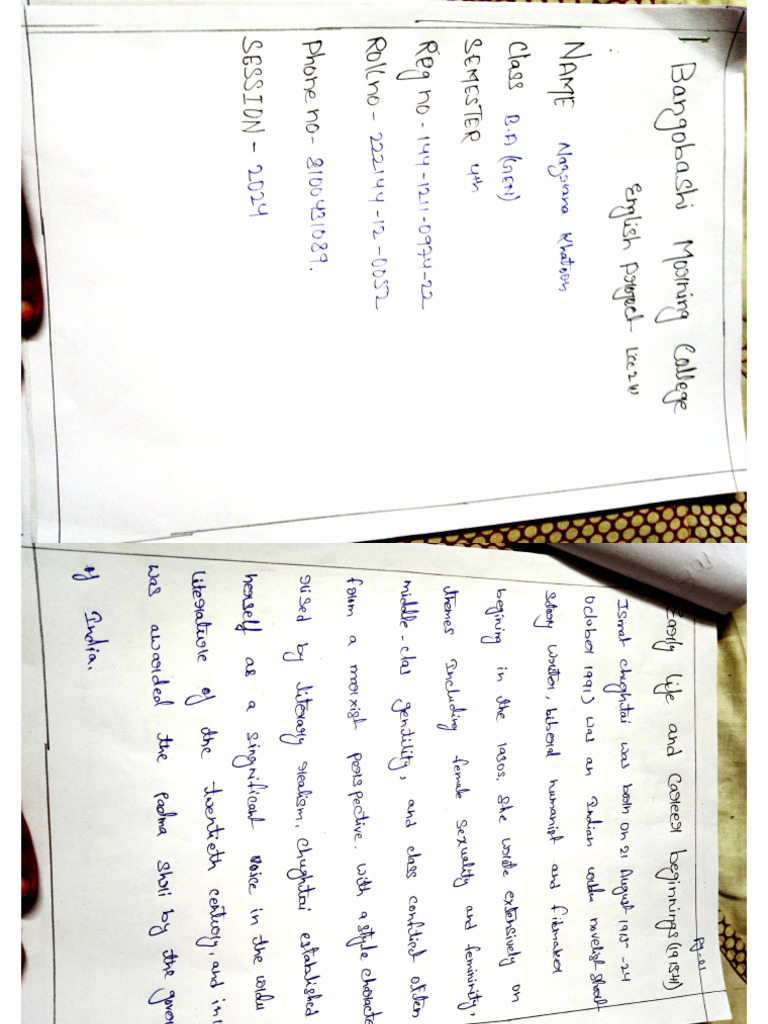 Bangobashi Morning College
English Project
NAME Nazrana Khatoon
Class B.A (GEN)
SEMESTER 4th
Reg no - 144-1211-0974-22
Roll no - 222144-12-0052
Phone no - 8100431089.
SESSION - 2024
Pg-01
Early life and Career beginnings (1915-41)
Ismat chughtai was born on 21 August 1915 - 24
October 1991) was an Indian urdu novelist short
story writer, liberal humanist and filmmaker
begining in the 1930s. She wrote extensively on
themes Including female sexuality and femininity,
middle-clas gentility, and class conflict often
form a marxist perspective. with a style characte
rised by literary realism, Chughtai established
herself as a singnificant voice in the urdu
literature of the twentieth century, and in 1
was awarded the Padma Shri by the gover
of India.